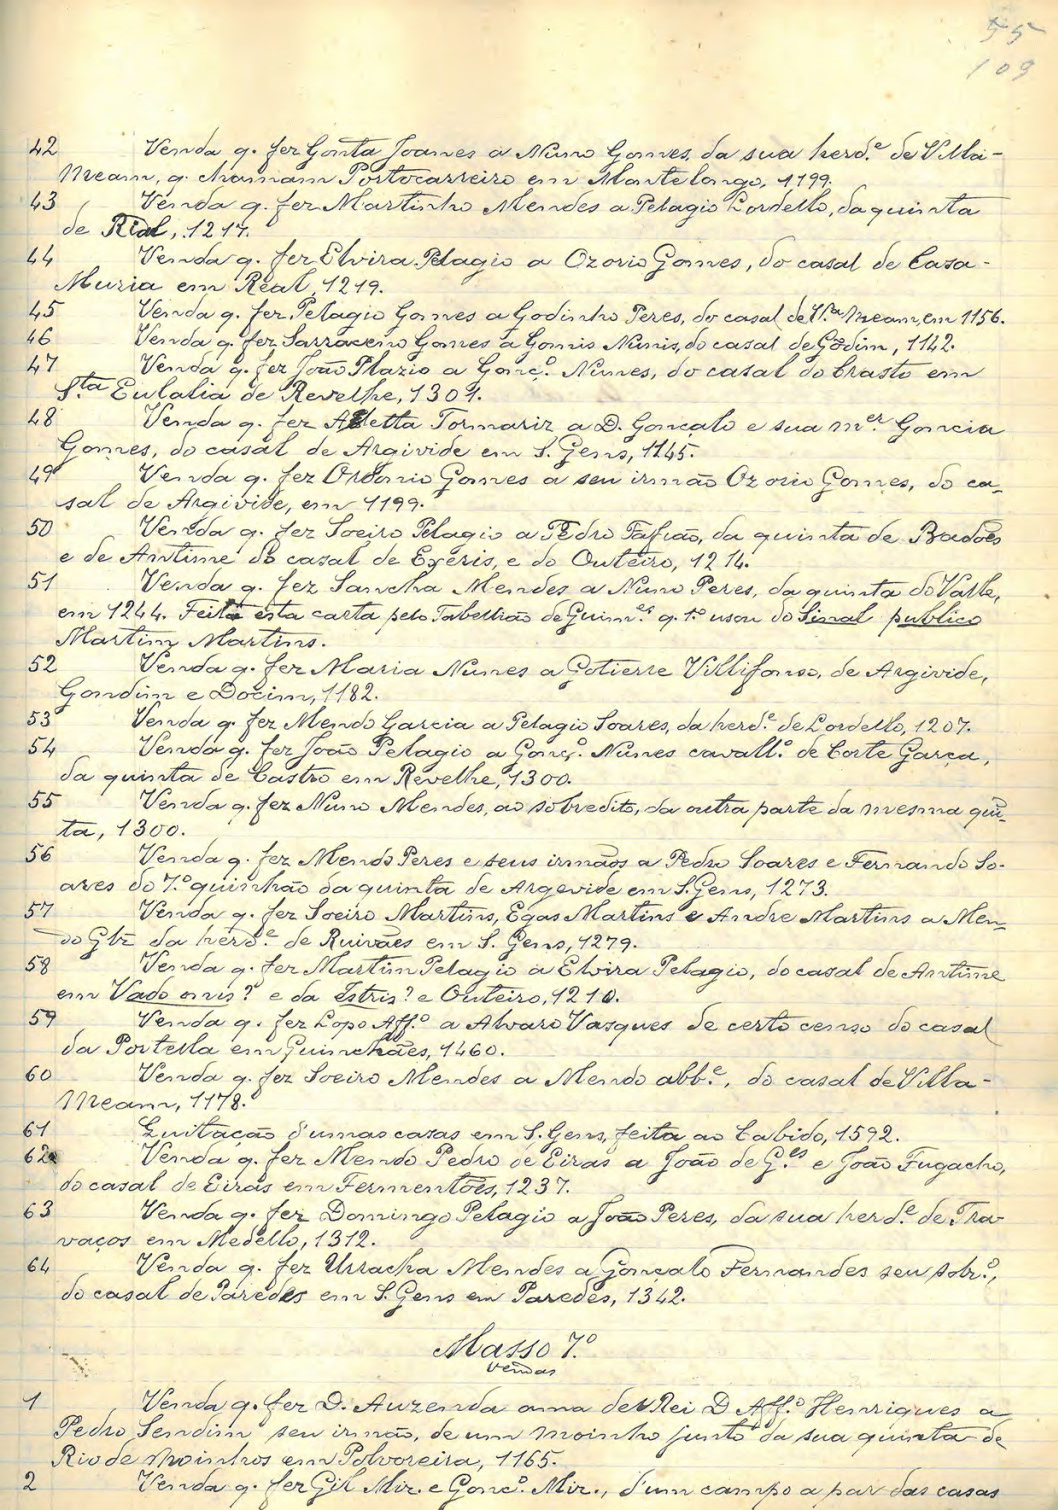 55
109
42 Venda q. fez Gonta Joannes a Nuno Gomes, da sua herd.e de Villa-
Meam, q. chamam Portocarreiro em Montelongo, 1199.
43 Venda q. fez Martinho Mendes a Pelagio Lordello, da quinta
de Real, 1217.
44 Venda q. fez Elvira Pelagio a Ozorio Gomes, do casal de Casa-
Muria em Real, 1219.
45 Venda q. fez Pelagio Gomes a Godinho Peres, do casal de V.ª Meam, em 1156.
46 Venda q. fez Sarraceno Gomes a Gomis Nunis, do casal de Gõdim, 1142.
47 Venda q. fez João Plazio a Gonç.º Nunes, do casal do Crasto em
S.ta Eulalia de Revelhe, 1301.
48 Venda q. fez Tormariz a D. Goncalo e sua m.er Goncia
Gomes, do casal de Argivide em S. Gens, 1145.
49 Venda q. fez Ordonio Gomes a seu irmão Ozorio Gomes, do ca-
sal de Argivide, em 1199.
50 Venda q. fez Soeiro Pelagio a Pedro Fafião, da quinta de Badões
e de Antime do casal de Exéris, e do Outeiro, 1214.
51 Venda q. fez Sancha Mendes a Nuno Peres, da quinta do Valle,
em 1244. Feita esta carta pelo Tabellião de Guim.es q. 1.º usou do Sinal publico
Martim Martins.
52 Venda q. fez Maria Nunes a Gotierre Villifonso, de Argivide,
Gondim e Docim, 1182.
53 Venda q. fez Mendo Garcia a Pelagio Soares, da herd.e de Lordello, 1207.
54 Venda q. fez João Pelagio a Gonç.º Nunes cavall.º de Corte Garça,
da quinta de Castro em Revelhe, 1300.
55 Venda q. fez Nuno Mendes, ao sobredito, da outra parte da mesma quĩ-
ta, 1300.
56 Venda q. fez Mendo Peres e seus irmãos a Pedro Soares e Fernando So-
ares do 7.º quinhão da quinta de Argevide em S. Gens, 1273.
57 Venda q. fez Soeiro Martins, Egas Martins e Andre Martins a Men-
do Glz da herd.e de Ruivães em S. Gens, 1279.
58 Venda q. fez Martim Pelagio a Elvira Pelagio, do casal de Antime
em Vado onis? e da Istris? e Outeiro, 1210.
59 Venda q. fez Lopo Aff.º a Alvaro Vasques de certo censo do casal
da Portella em Guinchães, 1460.
60 Venda q. fez Soeiro Mendes a Mendo abb.e, do casal de Villa-
Meam, 1178.
61 Quitação d'umas casas em S. Gens, feita ao Cabido, 1592.
62 Venda q. fez Mendo Pedro de Eiras a João de G.es e João Fugacho,
do casal de Eiras em Fermentões, 1237.
63 Venda q. fez Domingo Pelagio a João Peres, da sua herd.e de Tra-
vaços em Medello, 1312.
64 Venda q. fez Urracha Mendes a Gonçalo Fernandes seu sobr.º,
do casal de Paredes em S. Gens em Paredes, 1342.
Masso 7.º
Vendas
1 Venda q. fez D. Auzenda ama del Rei D. Aff.º Henriques a
Pedro Sendim seu irmão, de um moinho junto da sua quinta de
Rio de Moinhos em Polvoreira, 1165.
2 Venda q. fez Gil Mir. e Gonc.º Mir., d'um campo a par das casas